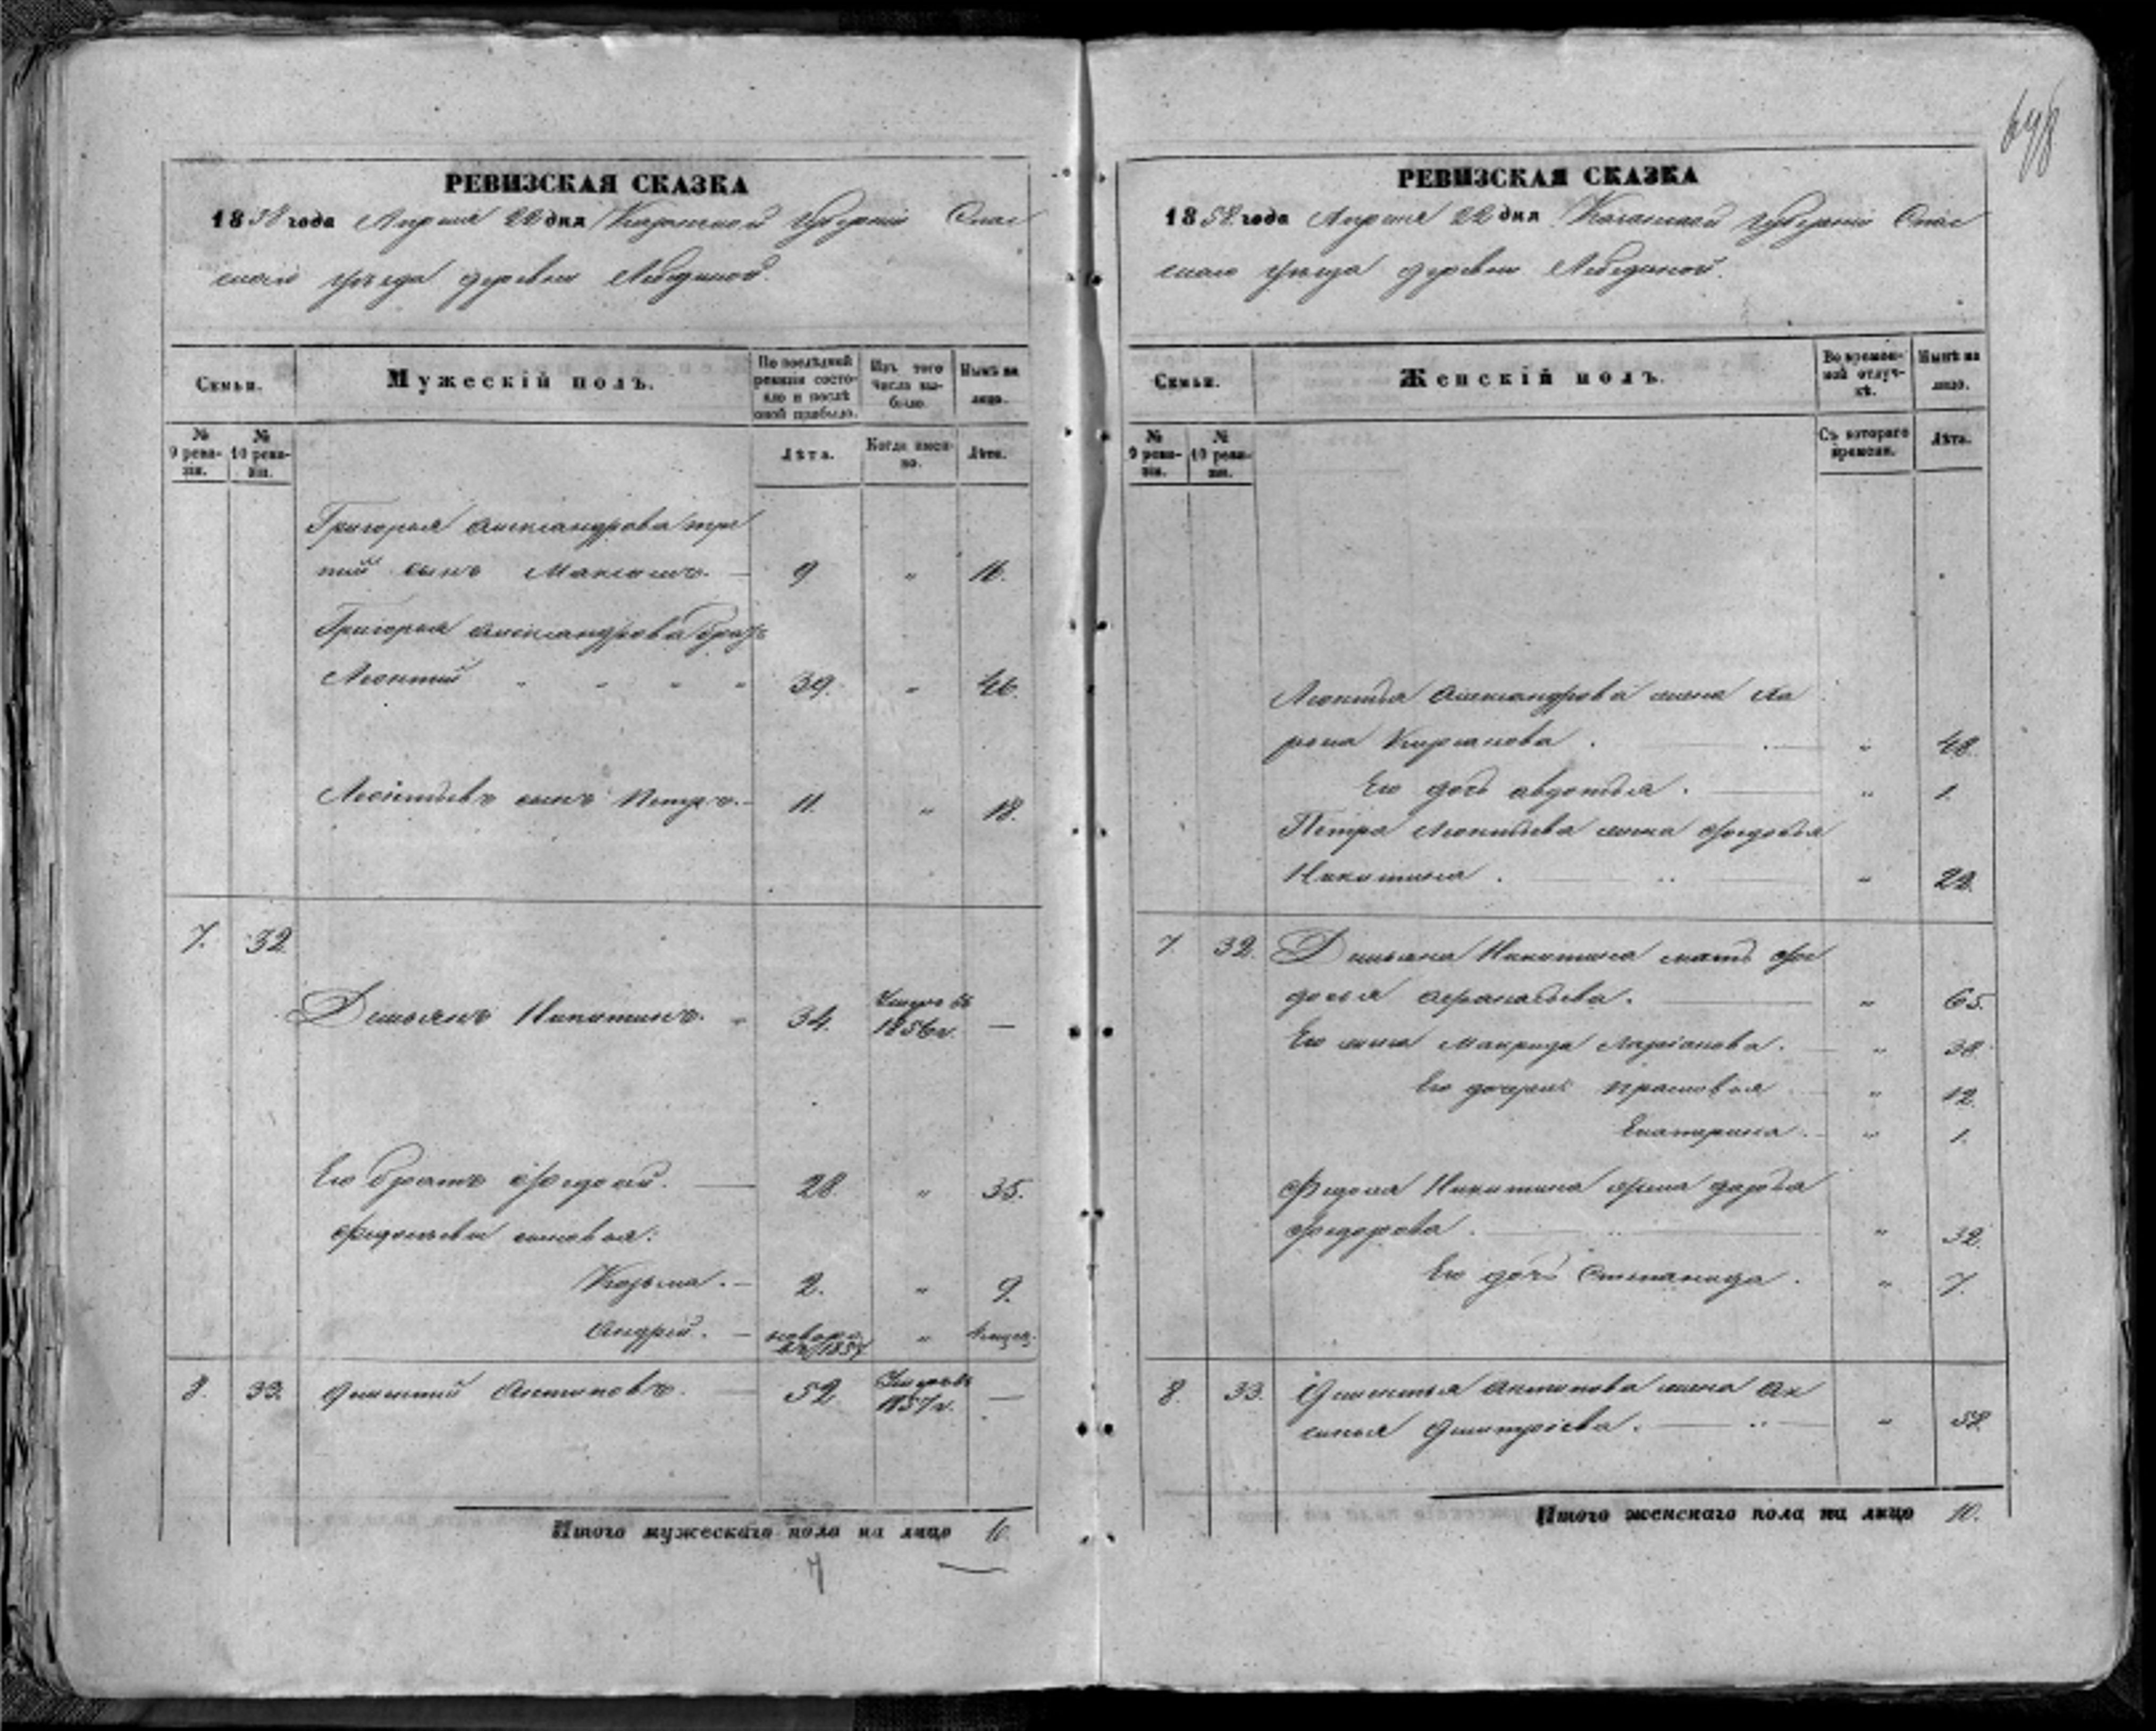 698
РЕВИЗСКАЯ СКАЗКА
1858 года Апреля 22 дня Казанской Губернiи Спас
скаго уѣзда деревни Лебединой.
Семьи.
Мужескiй полъ.
По послѣдней ревизiи состояло и послѣ оной прибыло.
Изъ того числа выбыло.
Нынѣ на лицо.
№ 9 ревизiи.
№ 10 ревизiи.
Лѣта.
Когда именно.
Лѣта.
Григорья Александрова тре
тiй сынъ Максимъ. — 9 " 16.
Григорья Александрова братъ
Леонтiй " " " " 39. " 46.
Леонтьевъ сынъ Петръ. — 11. " 18.
7. 32.
Демьянъ Никитинъ. " 34. Умеръ въ 1856 г. —
Его братъ Федосѣй. — 28. " 35.
Федосѣевы сыновья:
Козьма. — 2. " 9.
Андрей. — новоро. въ 1857 "
8. 33. Дементiй Антиповъ. — 52. Умеръ въ 1857 г. —
Итого мужескаго пола на лицо 6.
7
РЕВИЗСКАЯ СКАЗКА
1858 года Апреля 22 дня Казанской Губернiи Спас
скаго уѣзда деревни Лебединой.
Семьи.
Женскiй полъ.
Во временной отлучкѣ.
Нынѣ на лицо.
№ 9 ревизiи.
№ 10 ревизiи.
Съ котораго времени.
Лѣта.
Леонтья Александрова жена
Кирсанова . — " 48.
Его дочь Авдотья . — " 1.
Петра Леонтьева жена Федосья
Никитина . — " 22.
7. 32. Демьяна Никитина мать Фе
досья Афанасьева . — " 65.
Его жена Макрида Ларiонова . — " 38.
Его дочери Прасковья — " 12.
Екатерина . — " 1.
Федосѣя Никитина жена Дарья
Федорова . — " 32.
Его дочь Степанида . " 7.
8. 33. Дементья Антипова жена Ак
синья Дмитрiева . — " 58.
Итого женскаго пола на лицо 10.